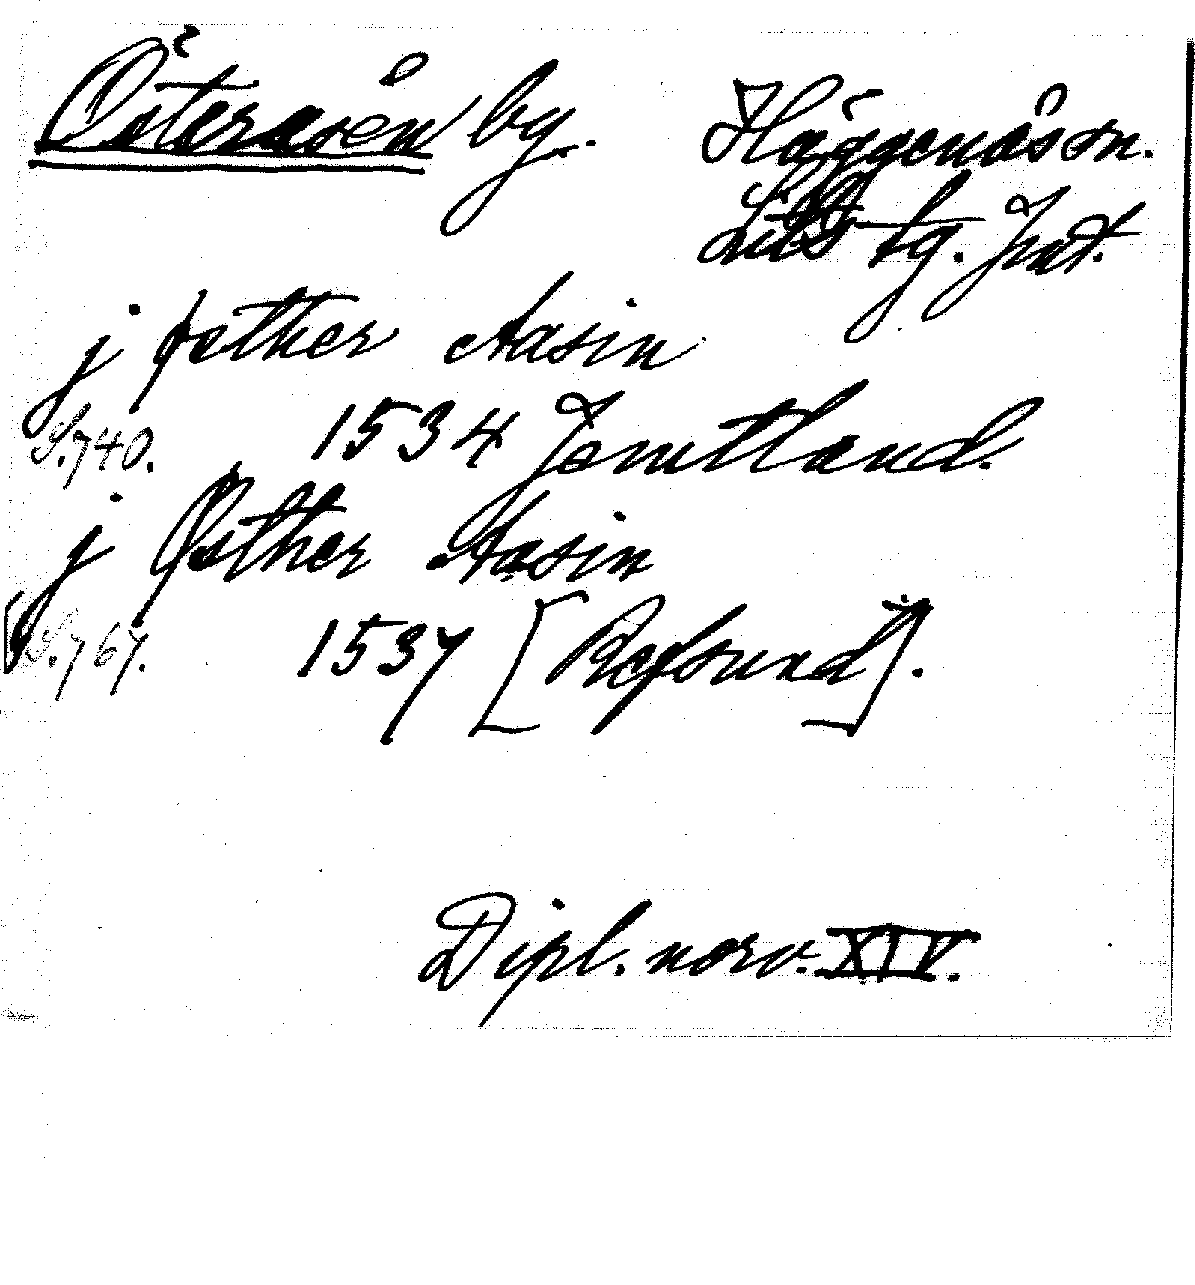 Österåsen by. Häggenås sn.
Lits tg. Jmt.
j østher Aasin
S. 740. 1534 Jemtland.
j Østher Aasin
S. 767. 1537 [Refsund].
Dipl. norv. XIV.